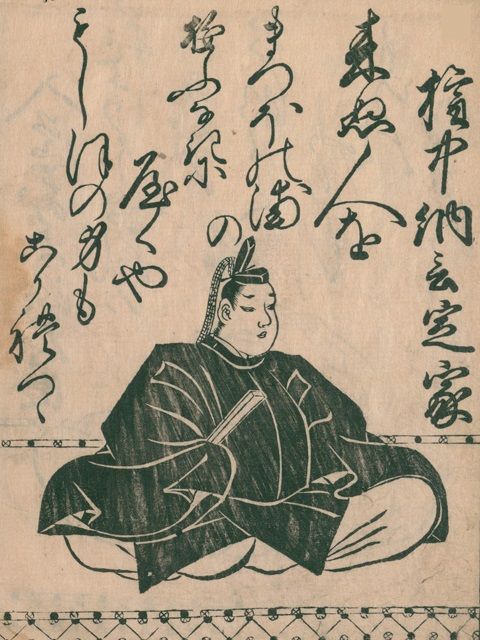 権中納言定家
来ぬ人を
まつほの浦
の
ゆふなぎに
屋くや
もしほの身も
こかれつゝ